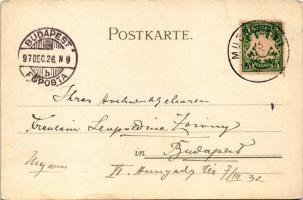 POSTKARTE.
BUDAPEST
97 DEC. 26. N 9
b
FŐPOSTA
MU
Ihrer Hochwohlgeboren
Fräulein Leopoldine
in Budapest
Ungarn
VI. Hunyady tér 7/III 32